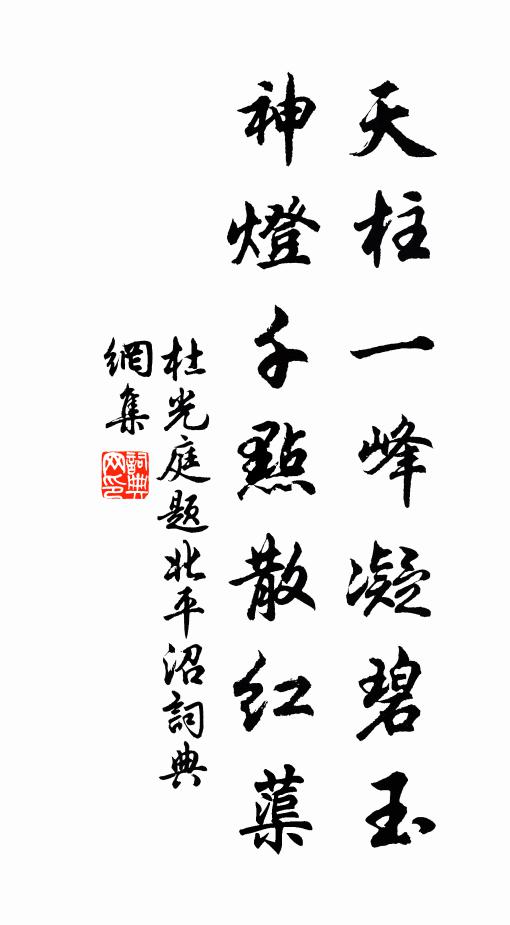 天柱一峰凝碧玉
神燈千點散紅蕖
杜光庭题北平沼詞典
網集
詞典
网印